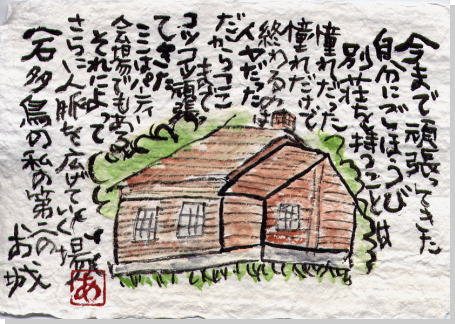 今まで頑張ってきた
自分にごほうび
別荘を持つことは
憧れだった
憧れだけで
終わるのは
イヤだった
だからここ
まで
コツコツ頑張っ
てきた
ここはパーティー
会場でもある
それによって
さらに人脈を広げていく場所
石多鳥の私の第一の
お城
あ